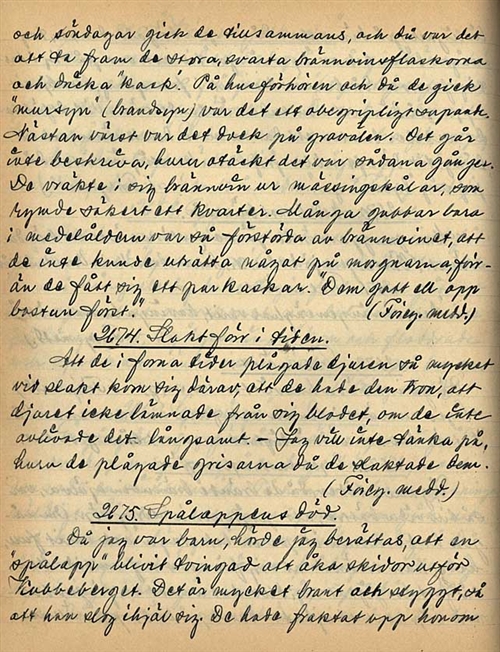 och söndagar gick de tillsammans, och då var det
att ta fram de stora, svarta brännvinsflaskorna
och dricka "kask". På husförhören och då de gick
"mursyn" (brandsyn) var det ett obegripligt supande.
Nästan värst var det dock på gravölen. Det går
inte beskriva, huru otäckt det var sådana gånger.
De vräkte i sig brännvin ur mässingskålar, som
rymde säkert ett kvarter. Många gubbar bara
i medelåldern var så förstörda av brännvinet, att
de inte kunde uträtta något på morgnarna för-
än de fått sig ett par kaskar. "Dem gatt ell opp
bastun först." (Föreg. medd.)
2674. Slakt förr i tiden.
Att de i forna tider plågade djuren så mycket
vid slakt kom sig därav, att de hade den tron, att
djuret icke lämnade från sig blodet, om de inte
avlivade det långsamt. – Jag vill inte tänka på,
huru de plågade grisarna då de slaktade dem.
(Föreg. medd.)
2675. Spålappens död.
Då jag var barn, hörde jag berättas, att en
"spålapp" blivit tvingad att åka skidor utför
Kubbeberget. Det är mycket brant och styggt, så
att han slog ihjäl sig. De hade fraktat opp honom